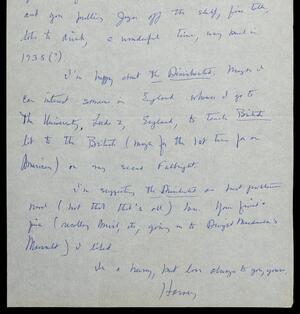 out you pulling Joyce off the shelf, fine talk,
lots to drink, a wonderful time, way back in
1935 (?)
I'm happy about the Disinherited. Maybe I
can interest someone in England where I go to
the University, Leeds 2, England, to teach British
lit to the British (maybe for the 1st time for an
American) on my second Fulbright.
I'm suggesting the Disinherited as best proletarian
novel (not that that's all) here. Your friend's
piece ( Mirsk, etc, going on to Dwight Macdonald's
) I liked.
In a hurry, but love always to you, yours,
Harvey